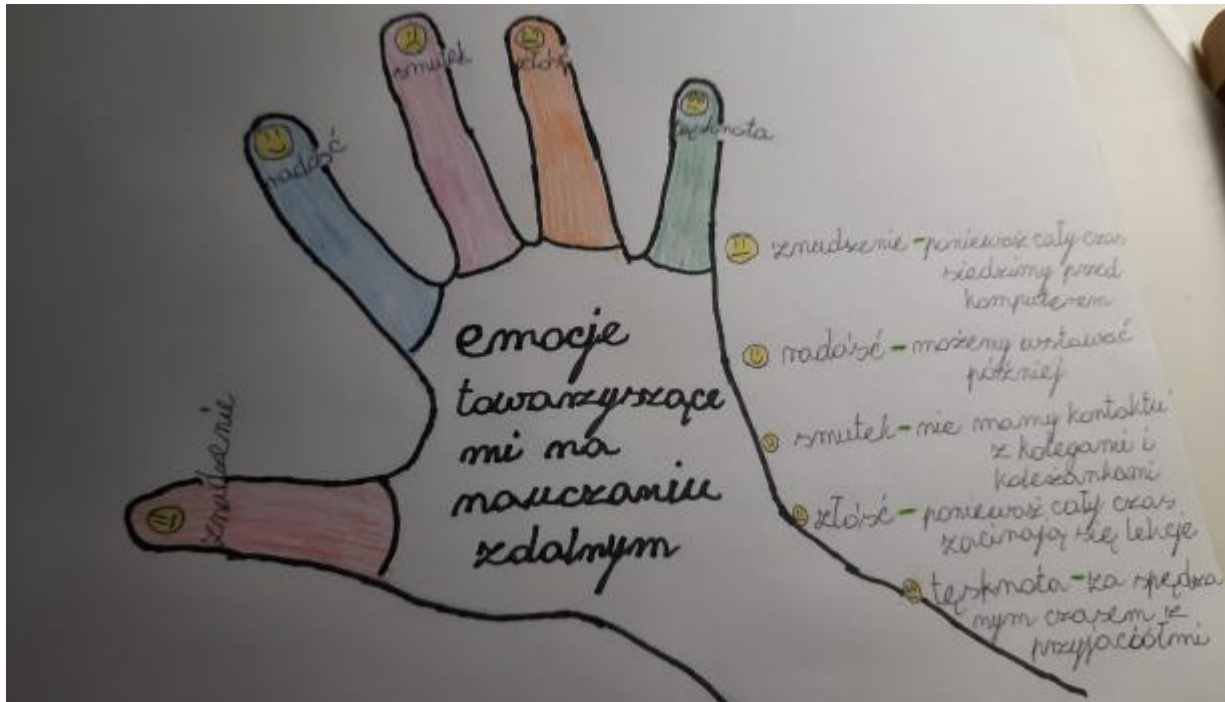 smutek
złość
radość
tęsknota
znudzenie
emocje
towarzyszące
mi na
nauczaniu
zdalnym
znudzenie - ponieważ cały czas
siedzimy przed
komputerem
radość - możemy wstawać
później
smutek - nie mamy kontaktu
z kolegami i
koleżankami
złość - ponieważ cały czas
zacinają się lekcje
tęsknota - za spędza
nym czasem z
przyjaciółmi